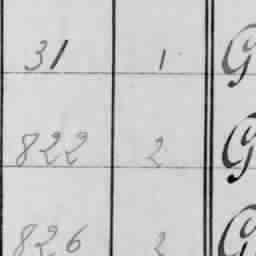 31 1 G
822 2 G
826 2 G